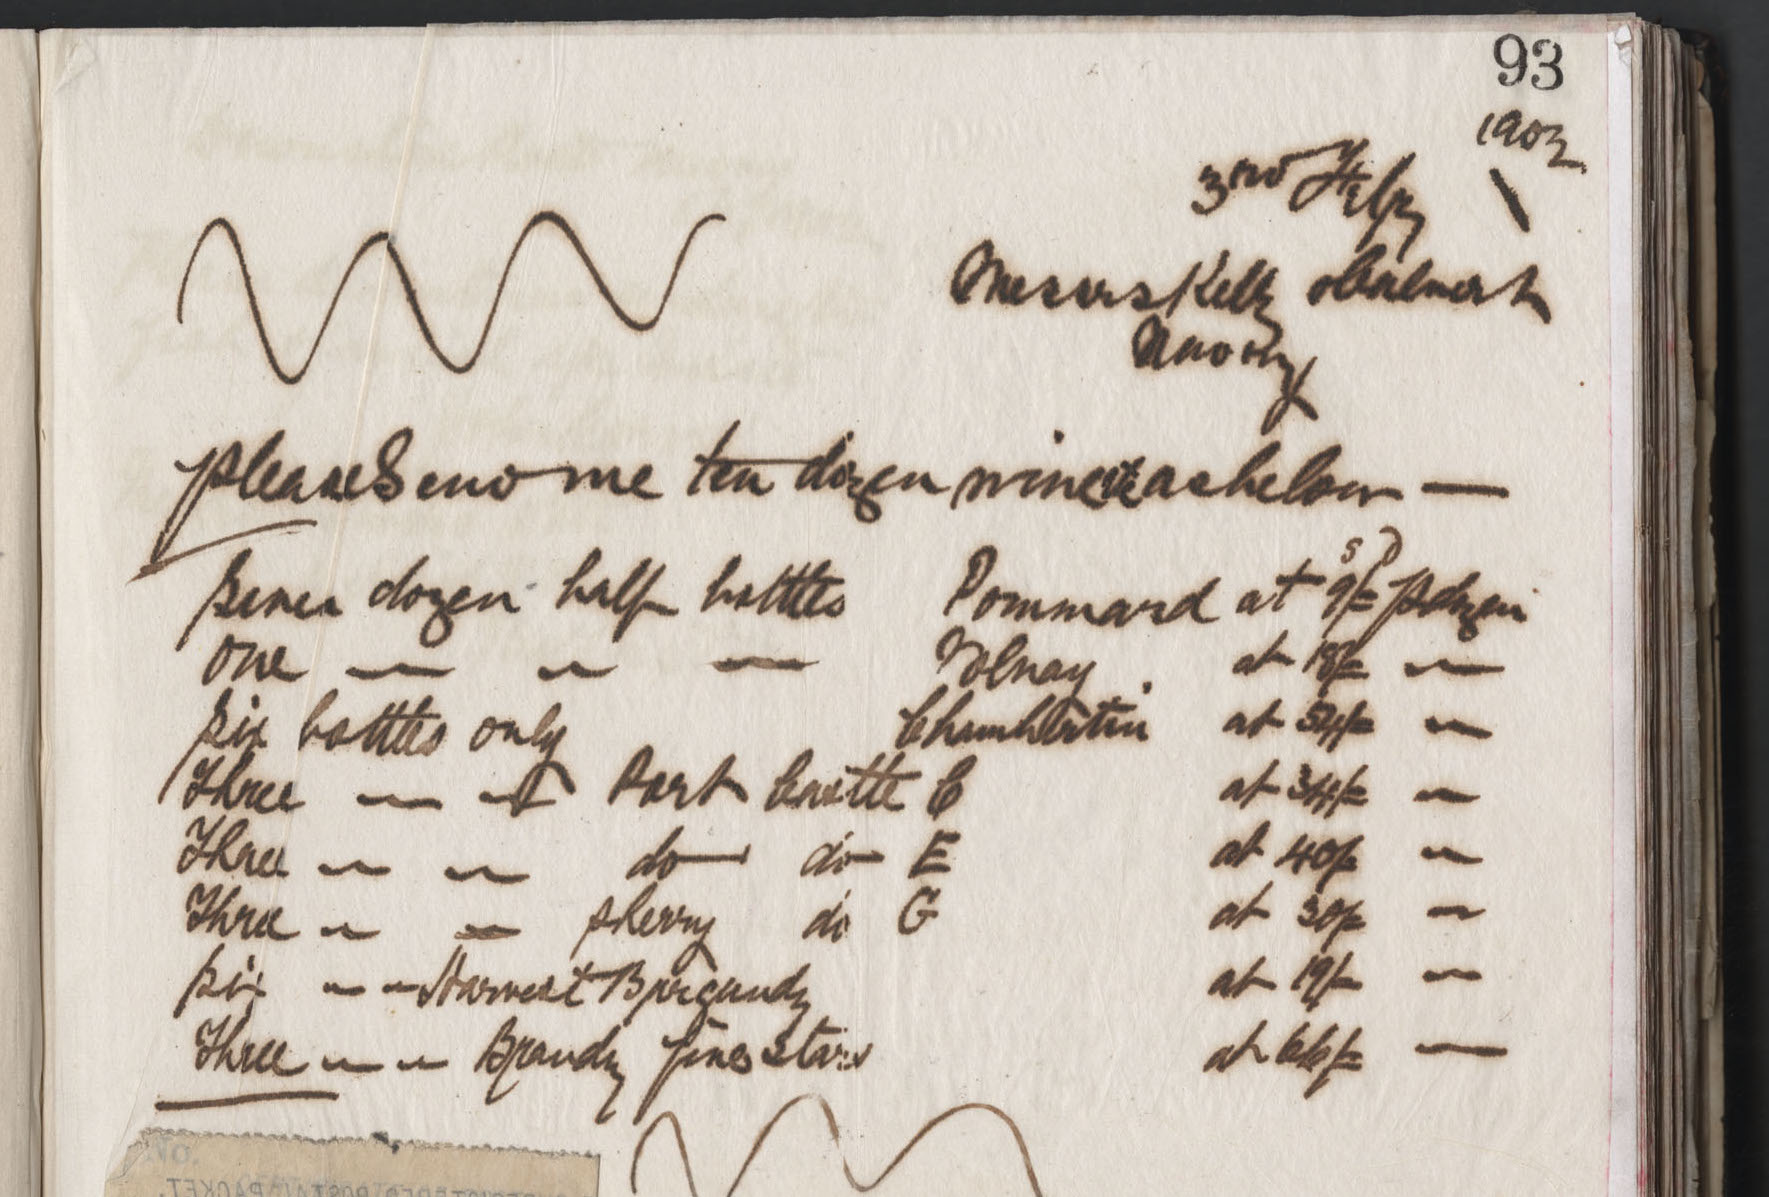 93
1902
3rd Feby
Messrs Kelly
please Send me ten dozen wine as below —
seven dozen half bottles Pommard at 9/= p dozen
s D
one — " — Volnay at 18/= "
six bottles only Chambertin at 54/= "
Three — " Port Castle C at 34/= "
Three " " do do E at 40/= "
Three " " sherry do G at 30/= "
six " " Harvest Burgundy at 19/= "
Three " " Brandy fine 3 stars at 66/= —